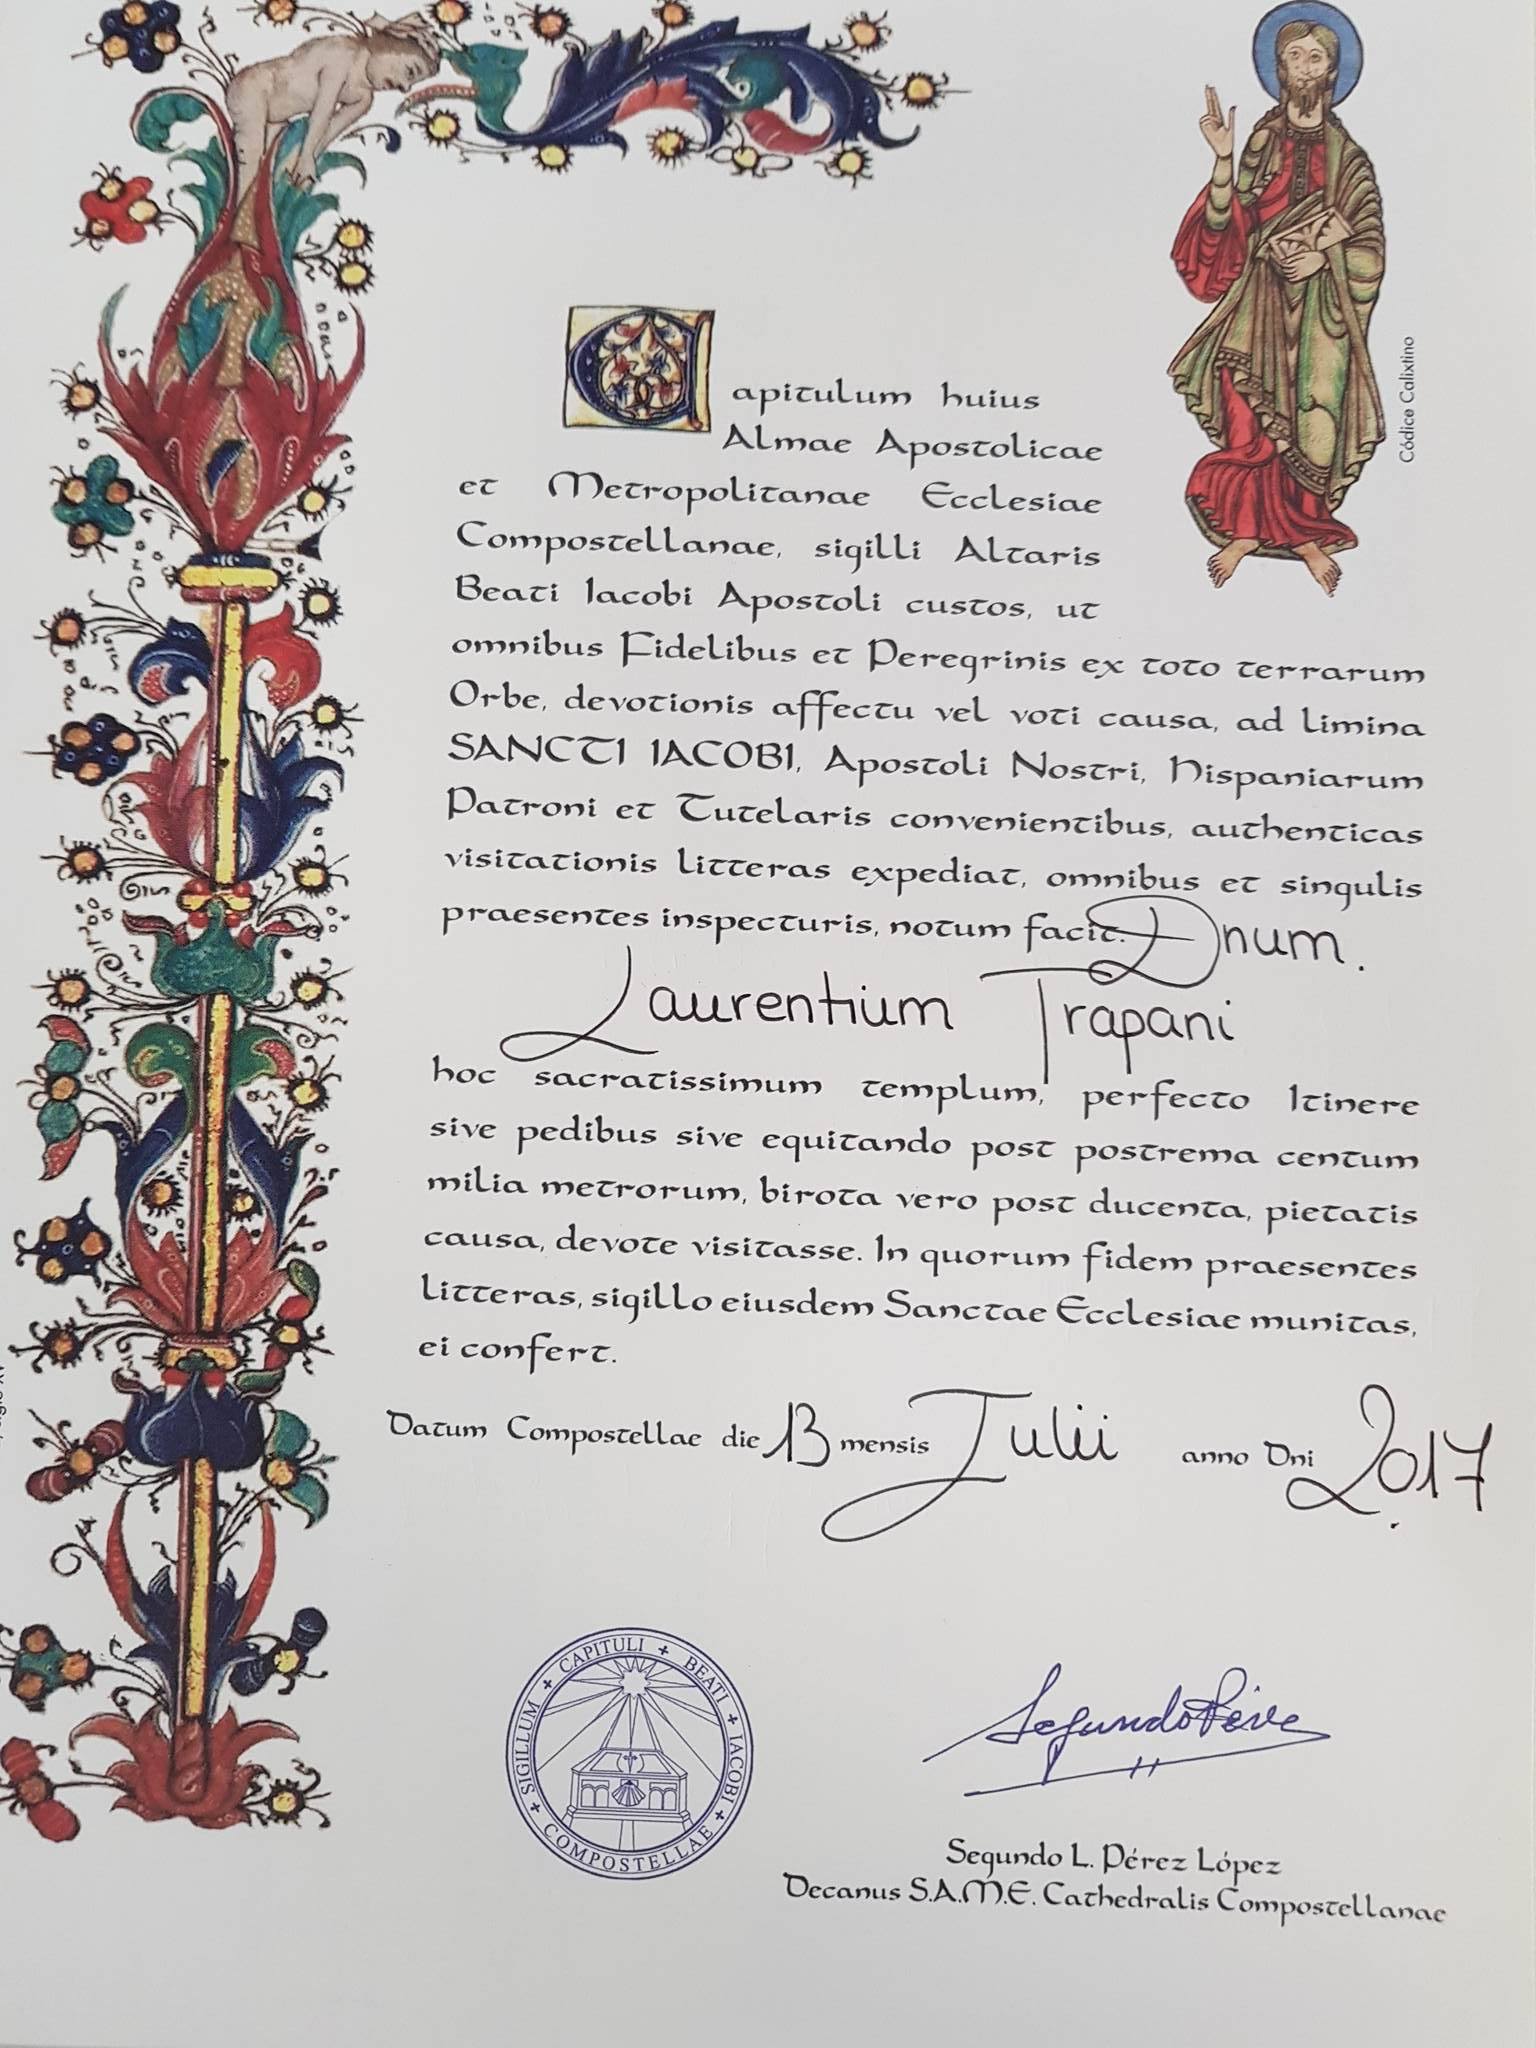 Capitulum huius
Almae Apostolicae
et Metropolitanae Ecclesiae
Compostellanae, sigilli Altaris
Beati Iacobi Apostoli custos, ut
omnibus Fidelibus et Peregrinis ex toto terrarum
Orbe, devotionis affectu vel voti causa, ad limina
SANCTI IACOBI, Apostoli Nostri, Hispaniarum
Patroni et Tutelaris convenientibus, authenticas
visitationis litteras expediat, omnibus et singulis
praesentes inspecturis, notum facit: Dnum.
Laurentium Trapani
hoc sacratissimum templum, perfecto Itinere
sive pedibus sive equitando post postrema centum
milia metrorum, birota vero post ducenta, pietatis
causa, devote visitasse. In quorum fidem praesentes
litteras, sigillo eiusdem Sanctae Ecclesiae munitas,
ei confert.
Datum Compostellae die 13 mensis Iulii anno Dni 2017.
SIGILLUM + CAPITULI + BEATI + IACOBI + COMPOSTELLAE +
Segundo Pérez
Segundo L. Pérez López
Decanus S.A.M.E. Cathedralis Compostellanae
Códice Calixtino